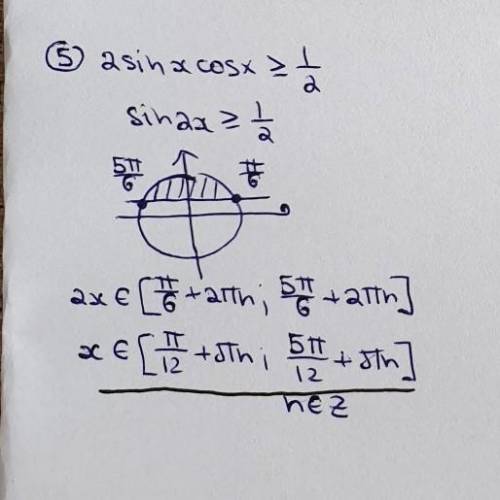 ⑤ 2sinxcosx ≥ 1/2
sin2x ≥ 1/2
5π/6 π/6
2x ∈ [π/6 + 2πn; 5π/6 + 2πn]
x ∈ [π/12 + πn; 5π/12 + πn]
n ∈ Z